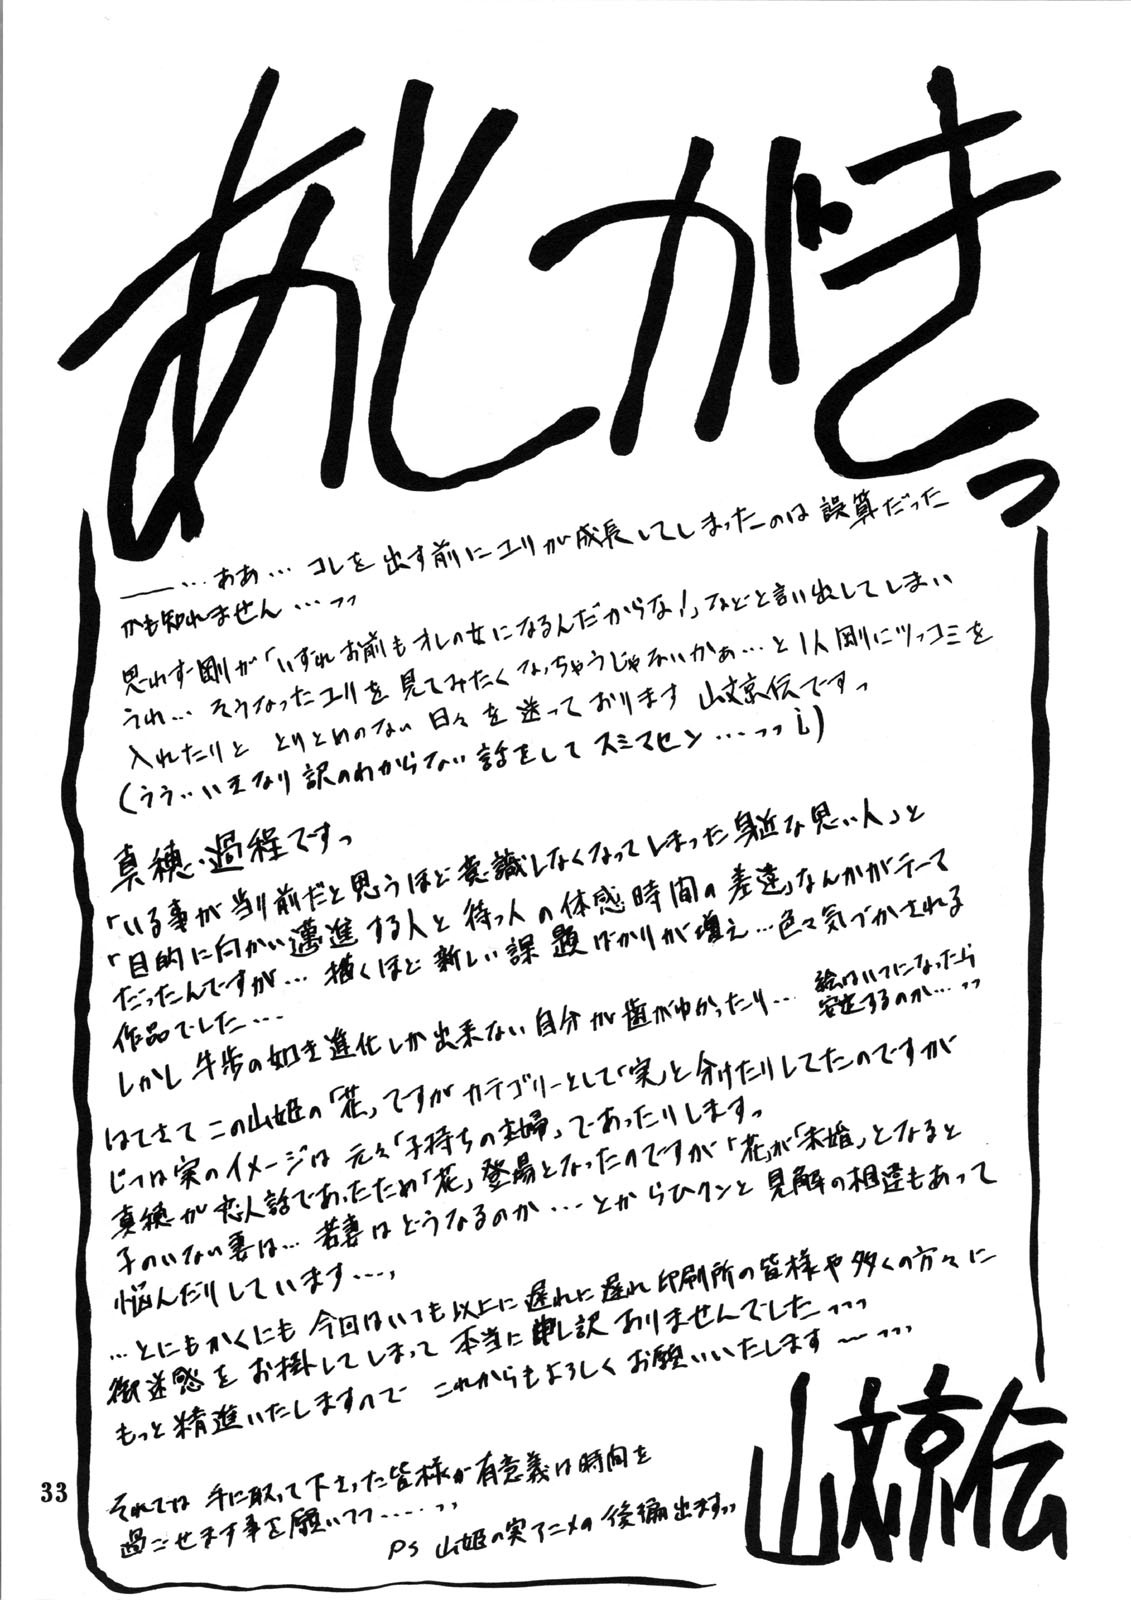 あとがきっ
――…ああ… コレを出す前にユリが成長してしまったのは誤算だった
かも知れません…っっ
思わず剛が「いずれお前もオレの女になるんだからな！」などと言い出してしまい
うれ… そうなったユリを見てみたくなっちゃうじゃないかぁ…と1人剛にツッコミを
入れたりと とりとめのない日々を送っております 山文京伝ですっ
(うう…いきなり訳のわからない話をしてスミマセン…っっ)
真穂・過程ですっ
「いる事が当り前だと思うほど意識しなくなってしまった身近な思い人」と
「目的に向かい邁進する人と待つ人の体感時間の差違」なんかがテーマ
だったんですが… 描くほど新しい課題ばかりが増え…色々気づかされる
作品でした…
しかし牛歩の如き進化しか出来ない自分が歯がゆかったり…
絵はいつになったら
安定するのか…っっ
はてさてこの山姫の「花」ですがカテゴリーとして「実」と分けたりしてたのですが
じつは実のイメージは元々「子持ちの主婦」であったりしますっ
真穂が恋人話であったため「花」登場となったのですが「花」が「未婚」となると
子のいない妻は…若妻はどうなるのか…とからひクンと見解の相違もあって
悩んだりしています…、
…ともかくにも今回はいつも以上に遅れに遅れ印刷所の皆様や多くの方々に
御迷惑をお掛してしまって本当に申し訳ありませんでしたっっっ
もっと精進いたしますので これからもよろしくお願いいたします～っっっ
それでは手に取って下さった皆様が有意義は時間を
過ごせます事を願いつつ……っっ
PS 山姫の実アニメの後編出ますっっ
山文京伝
33